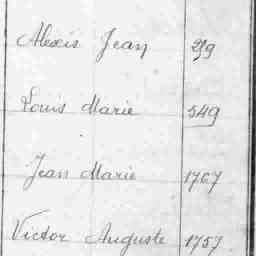 Alexis Jean 219
Louis Marie 549
Jean Marie 1767
Victor Auguste 1757